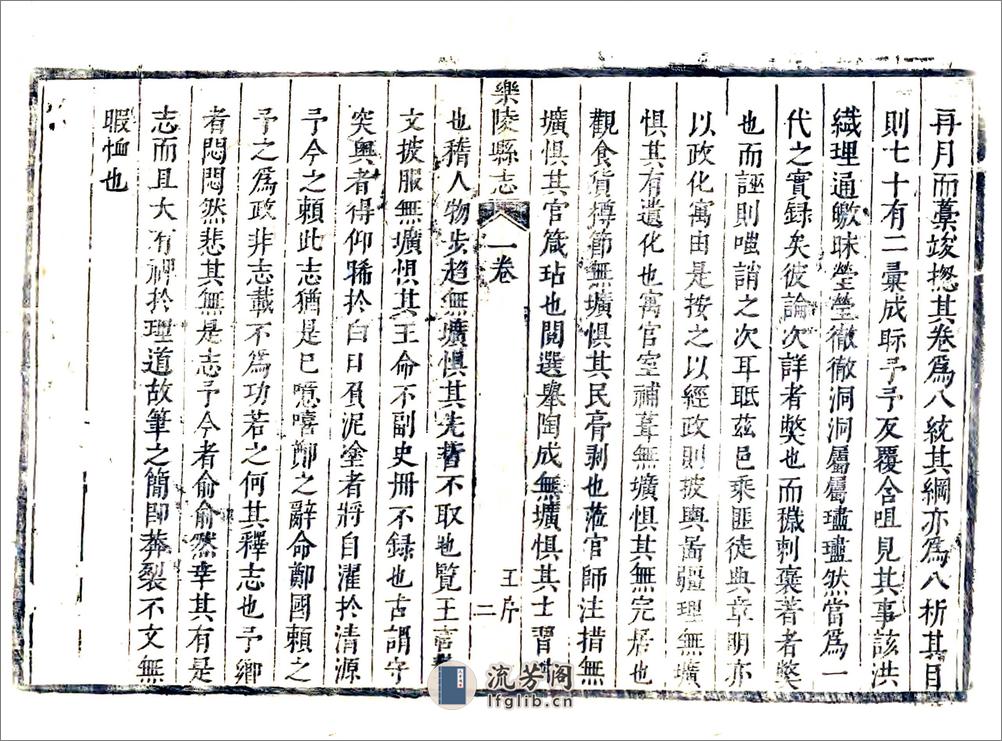 再月而藁竣摠其卷爲八統其綱亦爲八析其目
則七十有二彙成眎予予反覆含咀見其事該洪
纎理通皦昧瑩瑩徹徹洞洞屬屬璶璶然當爲一
代之實録矣彼論次詳者獘也而穢刺褒著者獘
也而誣則嗤誚之次耳眂兹邑乘匪徒典章明亦
以政化寓由是按之以經政則披輿啚疆理無壙
惧其有遺化也寓官室補葺無壙惧其無完居也
觀食貨樽節無壙惧其民膏剥也蒞官師注措無
壙惧其官箴玷也閲選舉陶成無壙惧其士習
也稽人物步趋無壙惧其先晢不取也覧王言
文披服無壙惧其王命不副史册不録也古謂守
突奥者得仰晞於白日負泥塗者將自濯於清源
予今之頼此志猶是已噫嘻鄭之辭命鄭國頼之
予之爲政非志載不爲功若之何其釋志也予鄉
者悶悶然悲其無是志予今者俞俞然幸其有是
志而且大有裨於理道故筆之簡卽莽裂不文無
暇恤也
樂陵縣志
一卷
王序
二
流芳阁
lfglib.cn